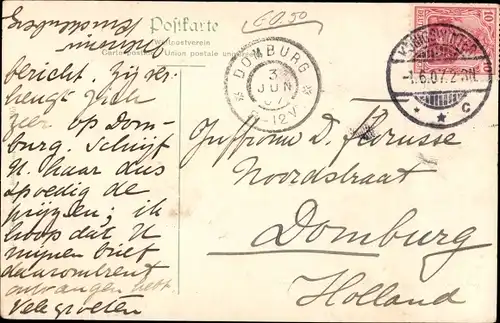 Postkarte
Weltpostverein
Carte postale Union postale universelle
E.O.50
DOMBURG
3
JUN
07
11-12V
KÖNIGSWINTER
-1.6.07.2-3N.
* * C
10
bericht. Zij ver-
heugt zich
zeer op Dom-
burg. Schrijf
U haar dus
spoedig de
prijzen; ik
hoop dat U
mijnen brief
daaromtrent
ontvangen hebt
Vele groeten
Juffrouw D.
Noordstraat
Domburg
Holland